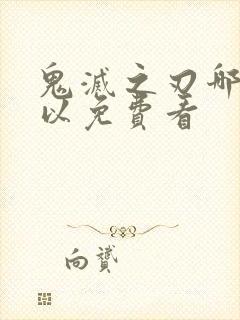 鬼滅之刃哪
以免費看
向贇